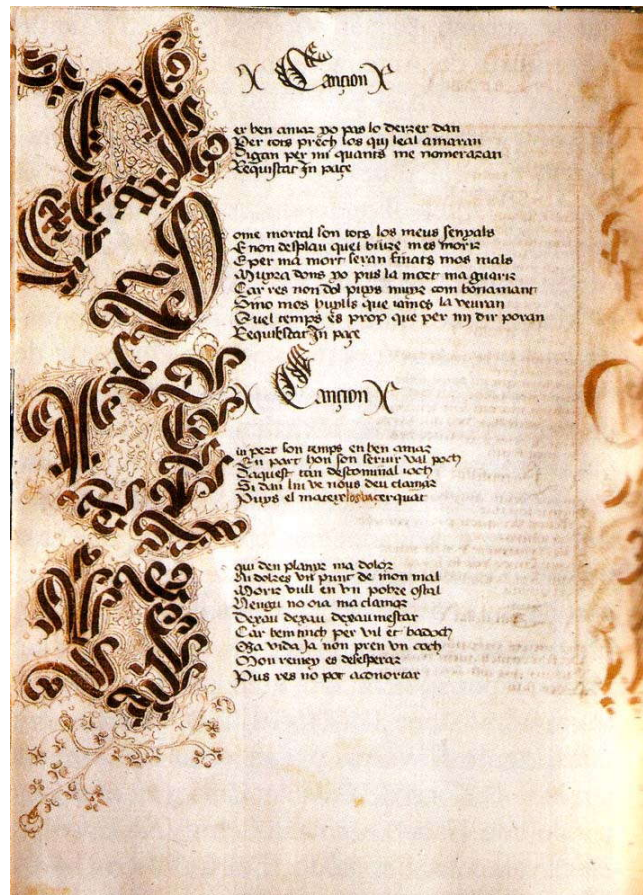 Cançion
er ben amar yo pas lo derrer dan
Per tots prech los qui leal amaran
Digan per mi quants me nomeraran
Requiscat In paçe
ome mortal son tots los meus senyals
E non desplau quel biure mes morir
E per ma mort seran finats mos mals
Muyra dons yo pus la mort ma guarir
Car res non dol puys muyr com bon amant
Sino mos huylls que iames la veuran
Quel temps es prop que per mi dir poran
Requiescat In paçe
Cançion
ui pert son temps en ben amar
En part hon son seruir val poch
Daquest tan descominal ioch
Si dan lin ve nous deu clamar
Puys el mateix çerquat
qui den planyr ma dolor
Ni dolres vn punt de mon mal
Morir vull en vn pobre ostal
Nengu no oia ma clamor
Dexau dexau dexaumestar
Car bem tinch per vil et badoch
Ma vida Ja non pren vn coch
Mon remey es desesperar
Pus res no pot aconortar